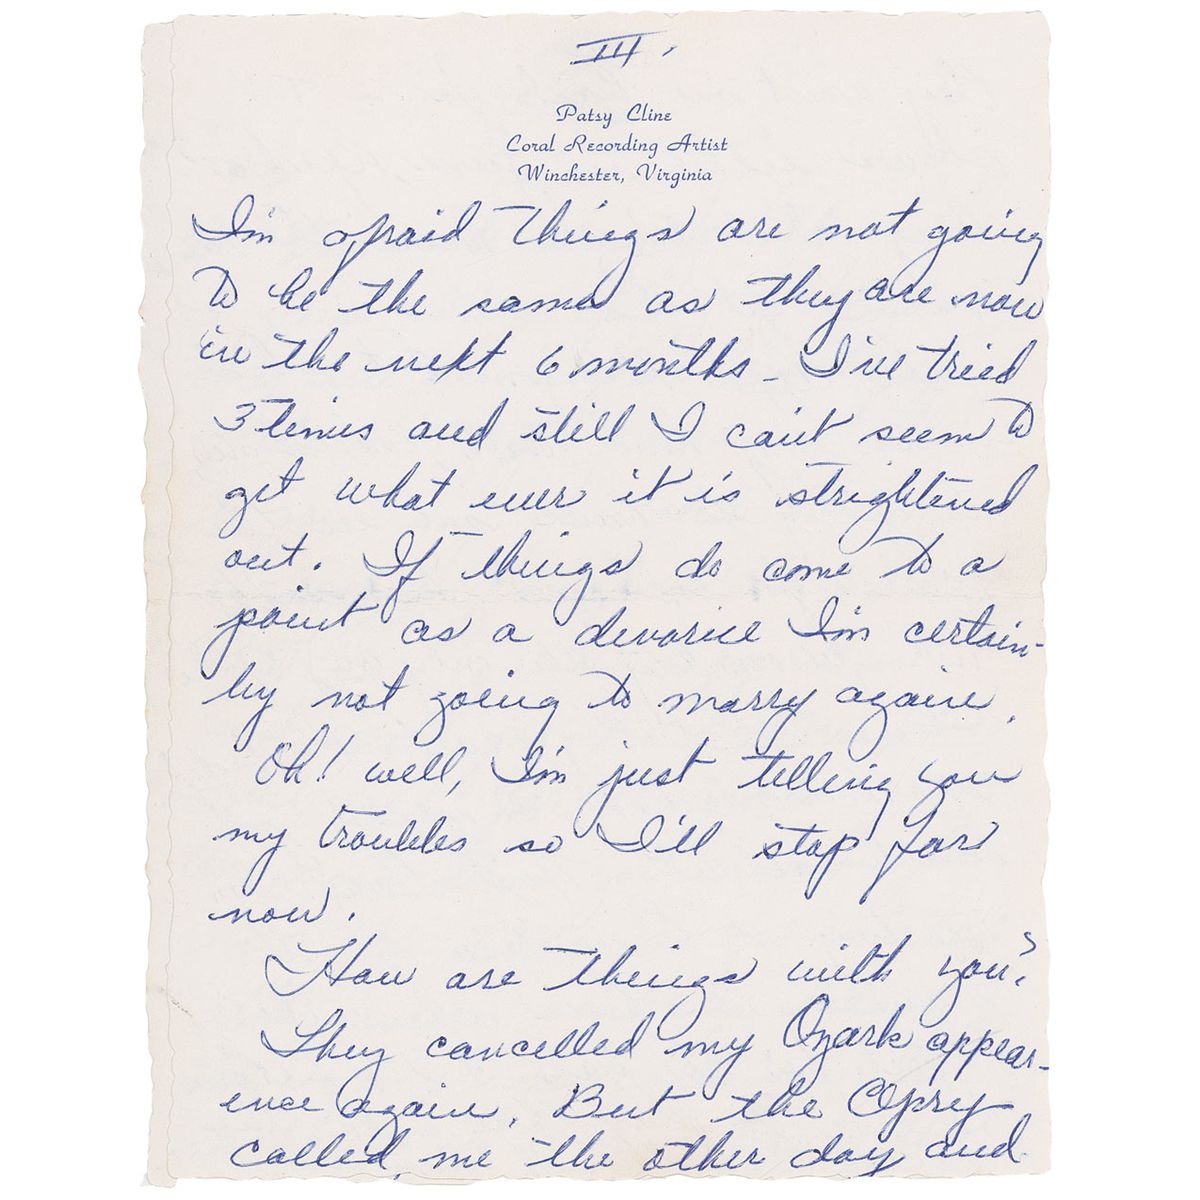 III.
Patsy Cline
Coral Recording Artist
Winchester, Virginia
I'm afraid things are not going
to be the same as they are now
in the next 6 months - I've tried
3 times and still I can't seem to
get what ever it is strightened
out. If things do come to a
point as a devorice I'm certain-
ly not going to marry again.
Oh! well, I'm just telling you
my troubles so I'll stop for
now.
How are things with you?
They cancelled my Ozark appear-
ence again. But the Opry
called me the other day and